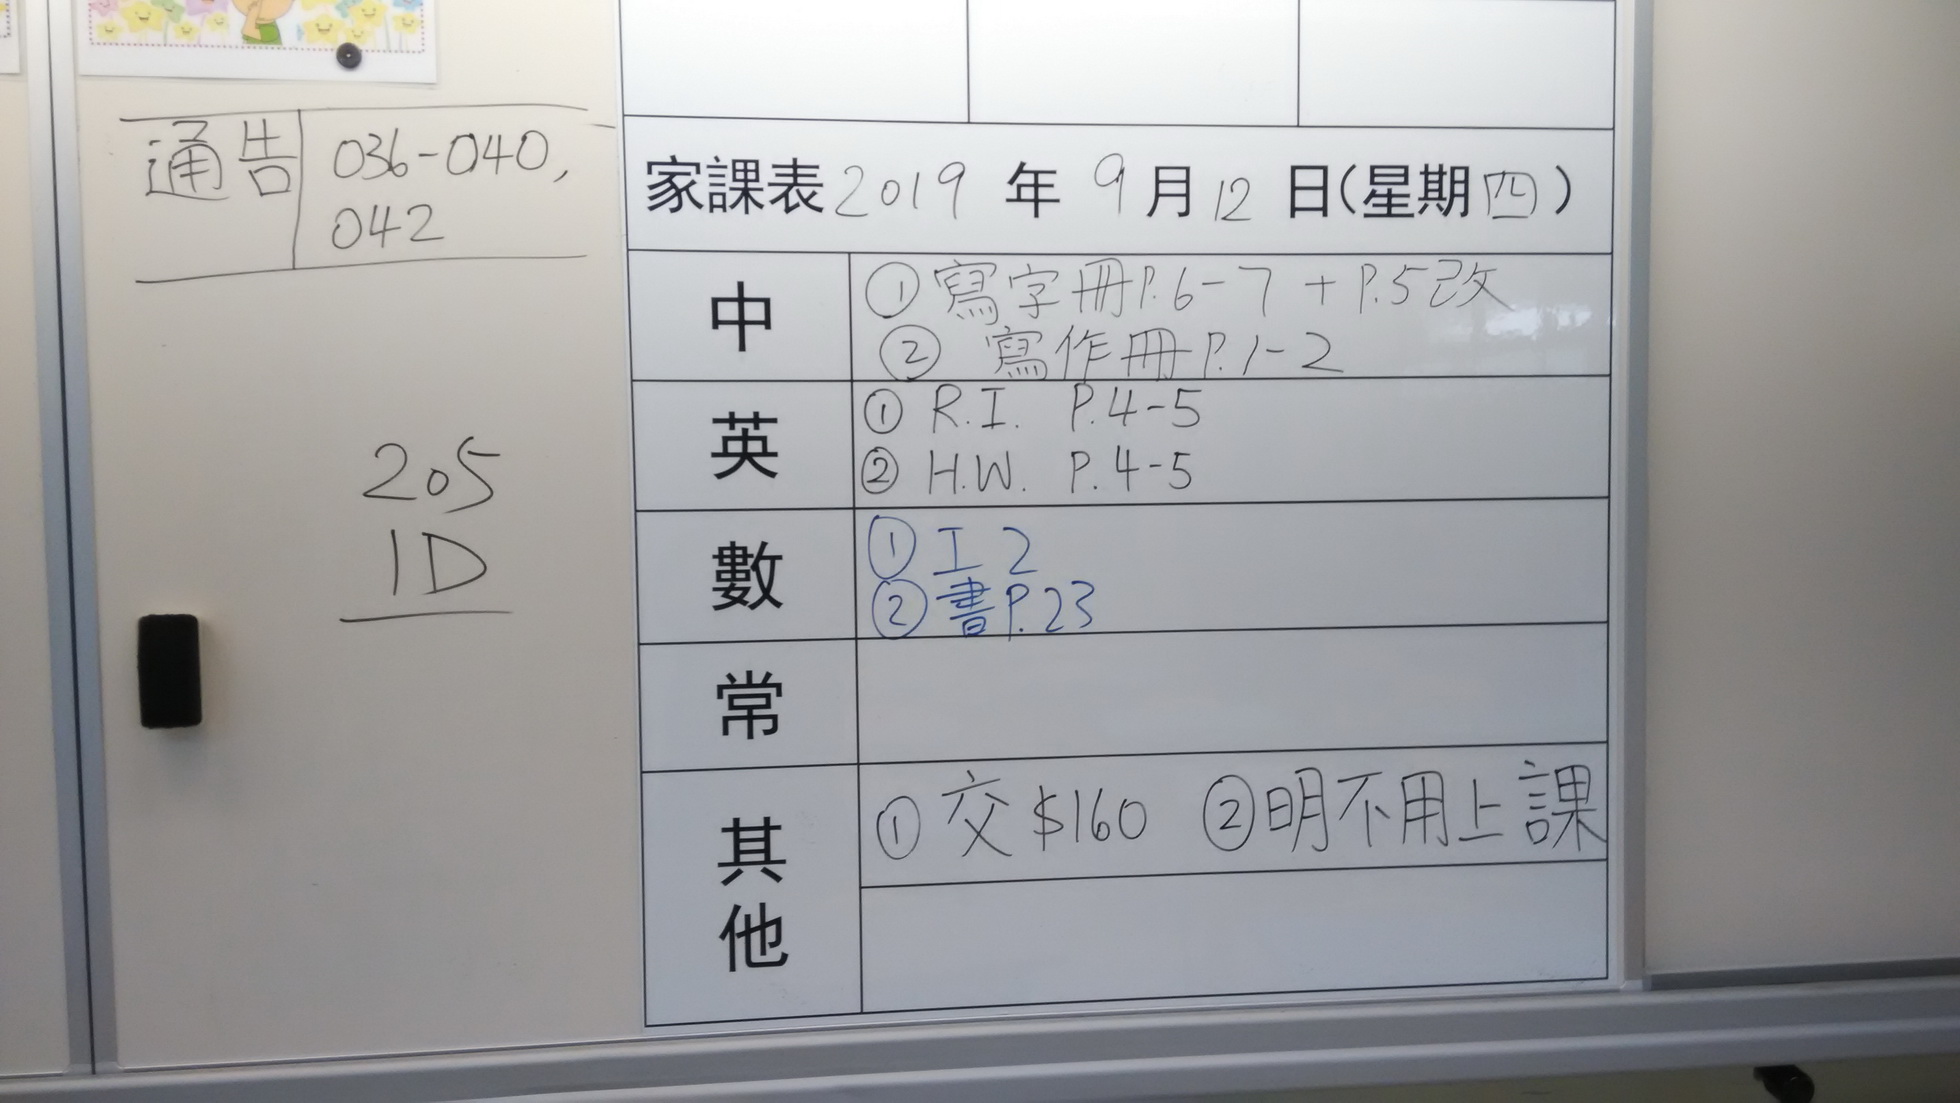 通告 036-040,
042
205
1D
家課表 2019 年 9 月 12 日(星期四)
中 ① 寫字冊P.6-7 + P.5改
② 寫作冊P.1-2
英 ① R.I. P.4-5
② H.W. P.4-5
數 ① I 2
② 書P.23
常
其他 ① 交$160 ② 明不用上課